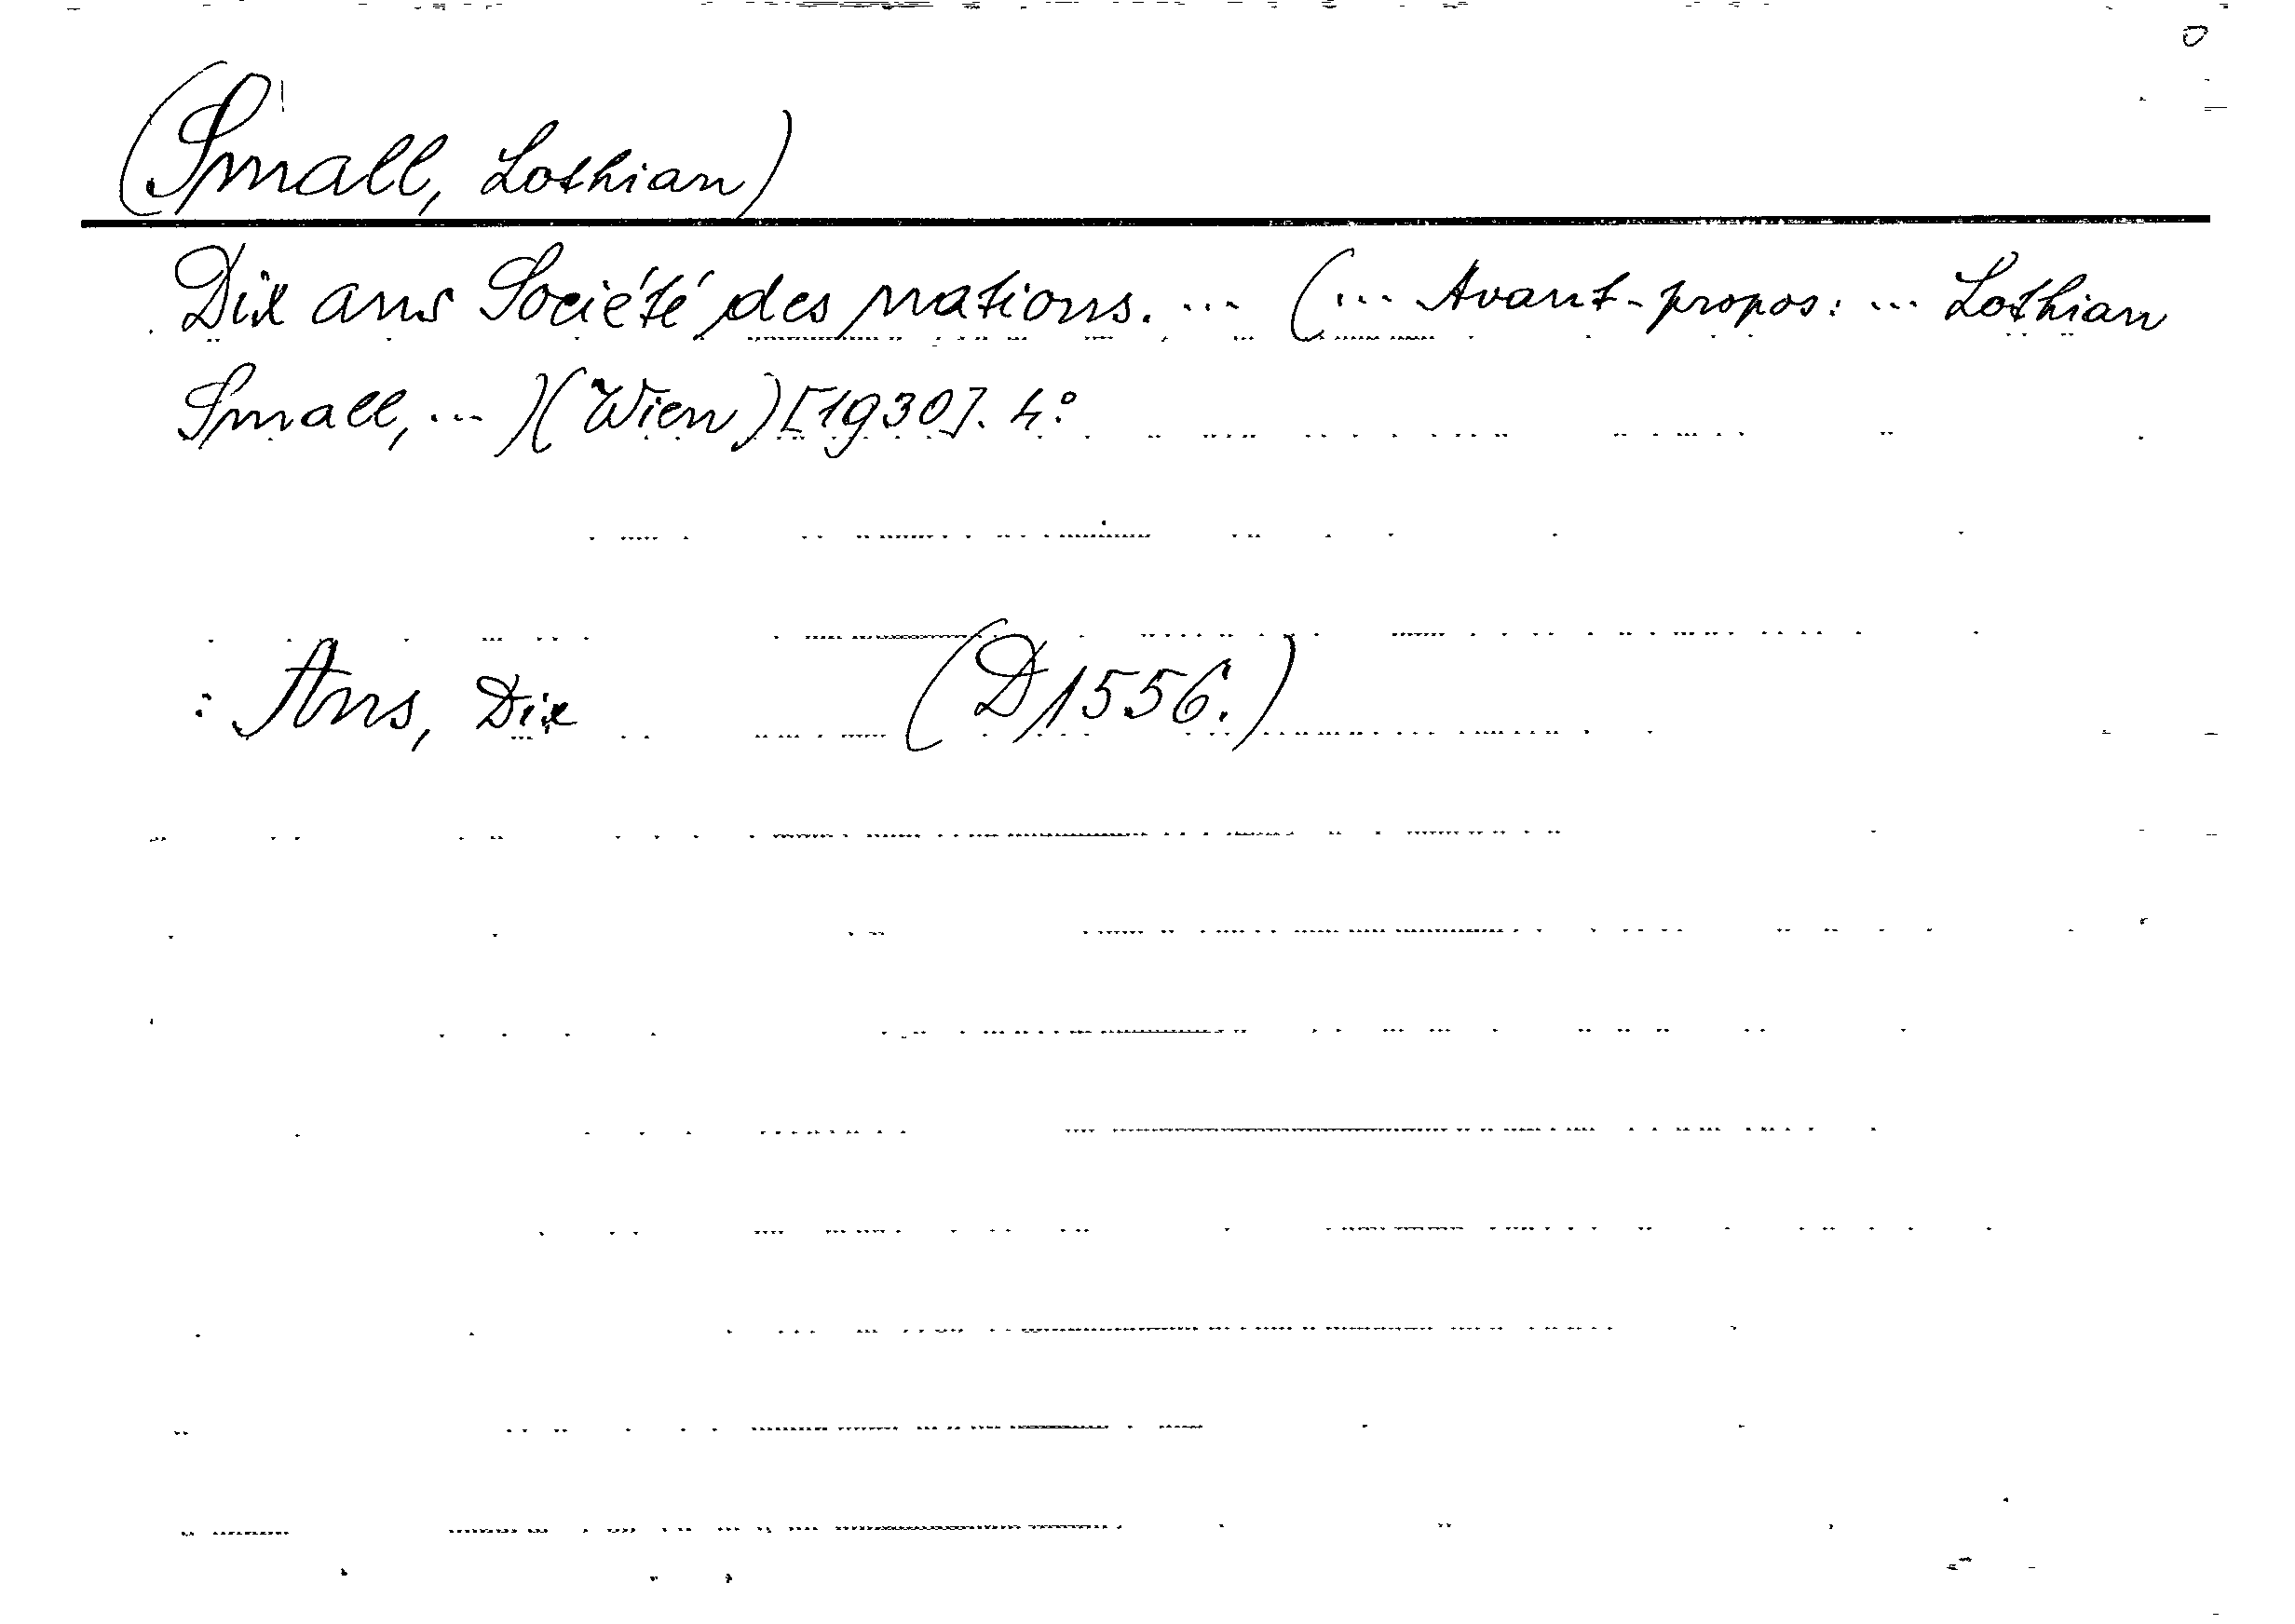 (Small, Lothian)
Dix ans Société des nations. ... (... Avant-propos: ... Lothian
Small, ... )(Wien) [1930]. 4°
: Ans, Dix (D1556.)